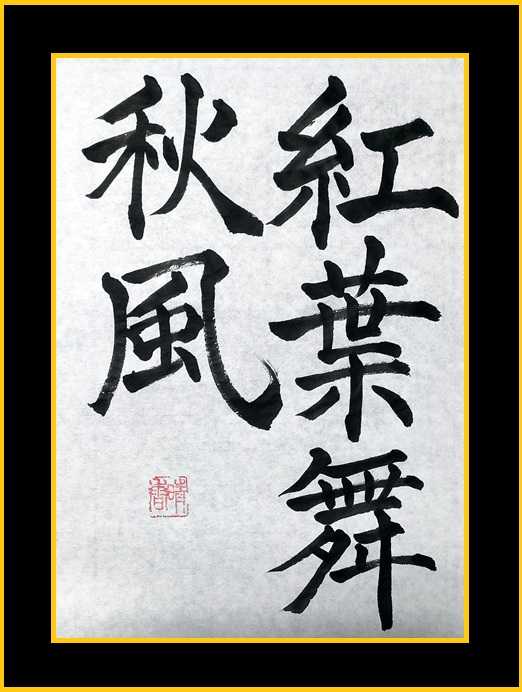 紅葉舞
秋風